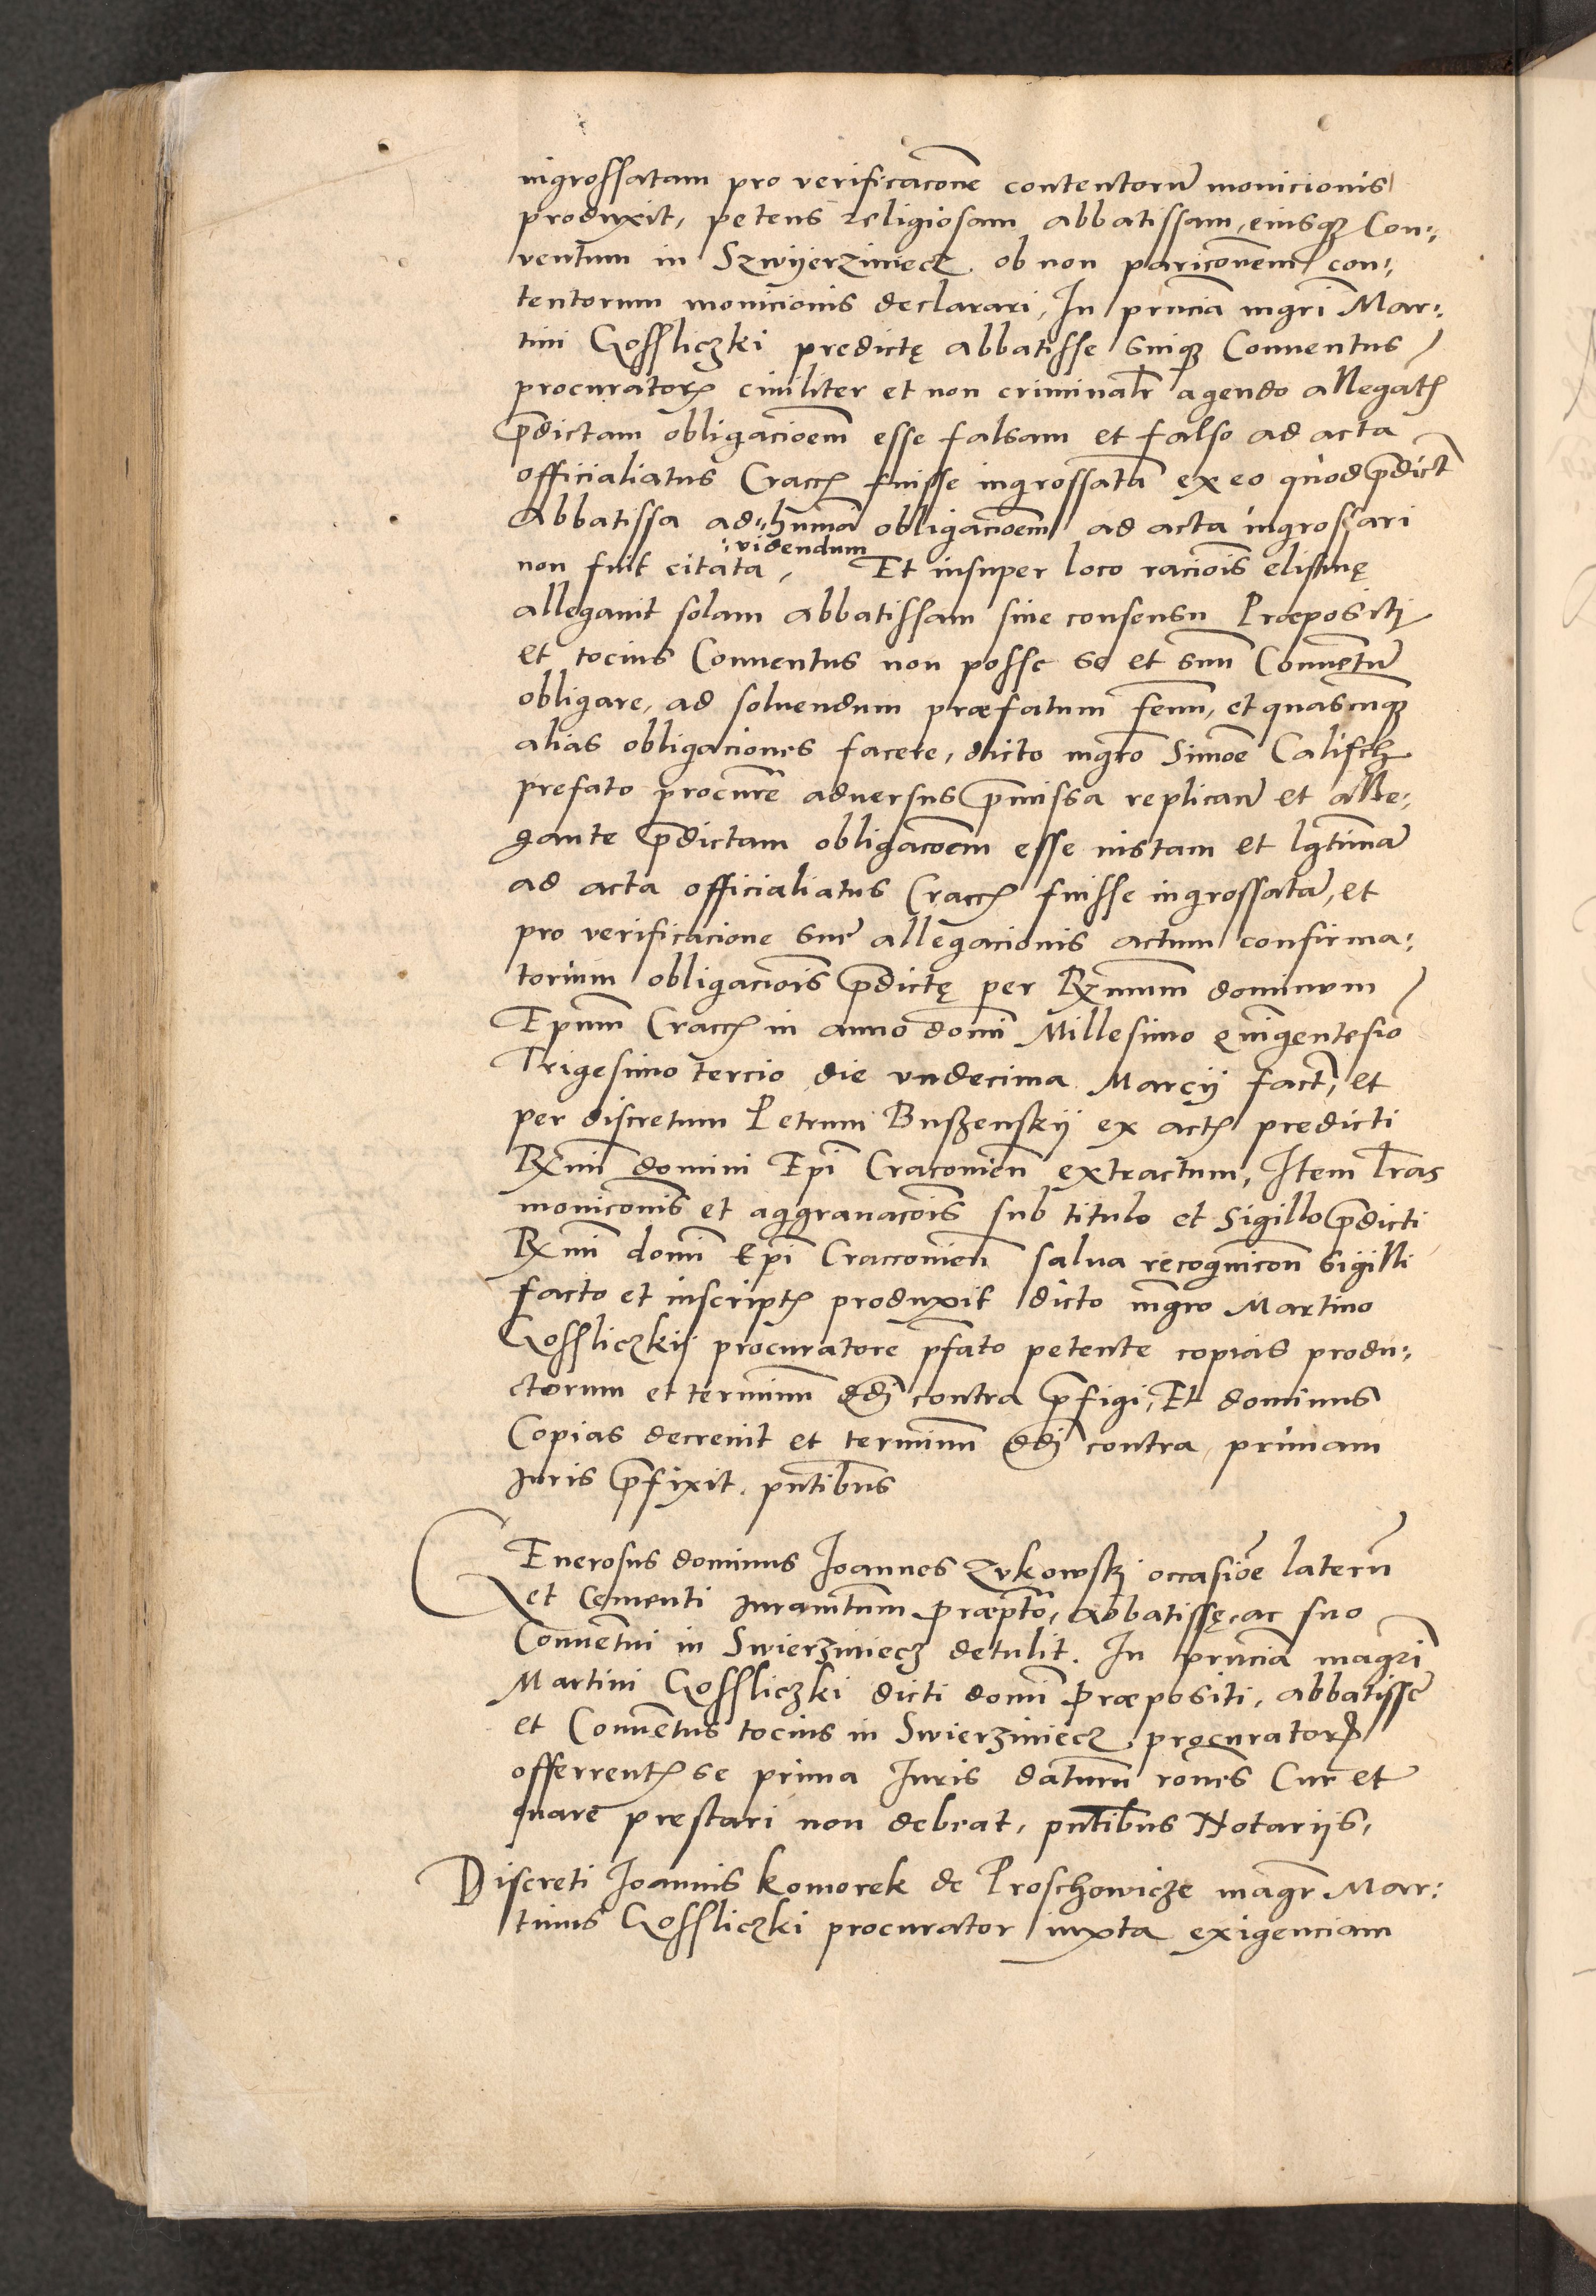 ingrossatam pro verificacōne contentorū monicionis
produxit, petens religiosam abbatissam, eiusqꝫ Con-,
ventum in Szwyerziniecz ob non paricōnem con-,
tentorum monicionis declarari, In pn̄cia mgri Mar-,
tini Gossliczki predictę abbatisse suiqꝫ Conuentus
procuratorꝭ ciuiliter et non criminalr̄ agendo allegatꝭ
p̄dictam obligacioēm esse falsam et falso ad acta
officialiatus Craccꝭ fuisse ingrossatā ex eo quod p̄dict̄
Abbatissa ad humōi obligacioēm ad acta ingrossari
videndum
non fuit citata, Et insuper loco raciōis elisiuę
allegauit solam abbatissam sine consensu Præpositi
et tocius Conuentus non posse se et suū Conuentū
obligare, ad soluendum præfatum fenū, et quascunqꝫ
alias obligaciones facere, dicto mgrō Simōe Calisch
prefato procurē aduersus p̄missa replicanꝭ et alle-,
gante p̄dictam obligacōem esse iustam et lgtimā
ad acta officialiatus Craccꝭ fuisse ingrossatā, et
pro verificacione suę allegacionis actum confirma-,
torium obligaciōis p̄dictę per Rx̄mum dominum
Epum Craccꝭ in anno domi Millesimo quingentesīo
Trigesimo tercio die vndecima Marcij fact̄, et
per discretum Petrum Buszenskij ex actꝭ predicti
Rx̄mi domini Epi Cracouien̄ extractum, Item lr̄as
monicōnis et aggrauacōis sub titulo et Sigillo p̄dicti
Rx̄mi domī Epi Craccouien̄ salua recognicōn sigilli
facto et inscriptꝭ produxit dicto mgrō Martino
Gossliczkij procuratore p̄fato petente copias produ-,
ctorum et terminū ddī contra p̄figi, Et dominus
Copias decreuit et terminū ddī contra primam
iuris p̄fixit. pn̄tibus
GEnerosus dominus Joannes Zukowski occasiōe laterū
et Cementi iuramtum præptō, abbatissę, ac suo
Conuentui in Swierziniecz detulit. In pn̄cia magri
Martini Gossliczki dicti domī Præpositi, abbatisse
et Conuentus tocius in Swierziniecz procuratorꝭ
offerrentꝭ se prima Iuris daturū rōnes Cur et
quare prestari non debeat, pn̄tibus Notarijs,
Discreti Joannis Komorek de Proschowicze magr̄ Mar-,
tinus Gossliczki procurator iuxta exigenciam